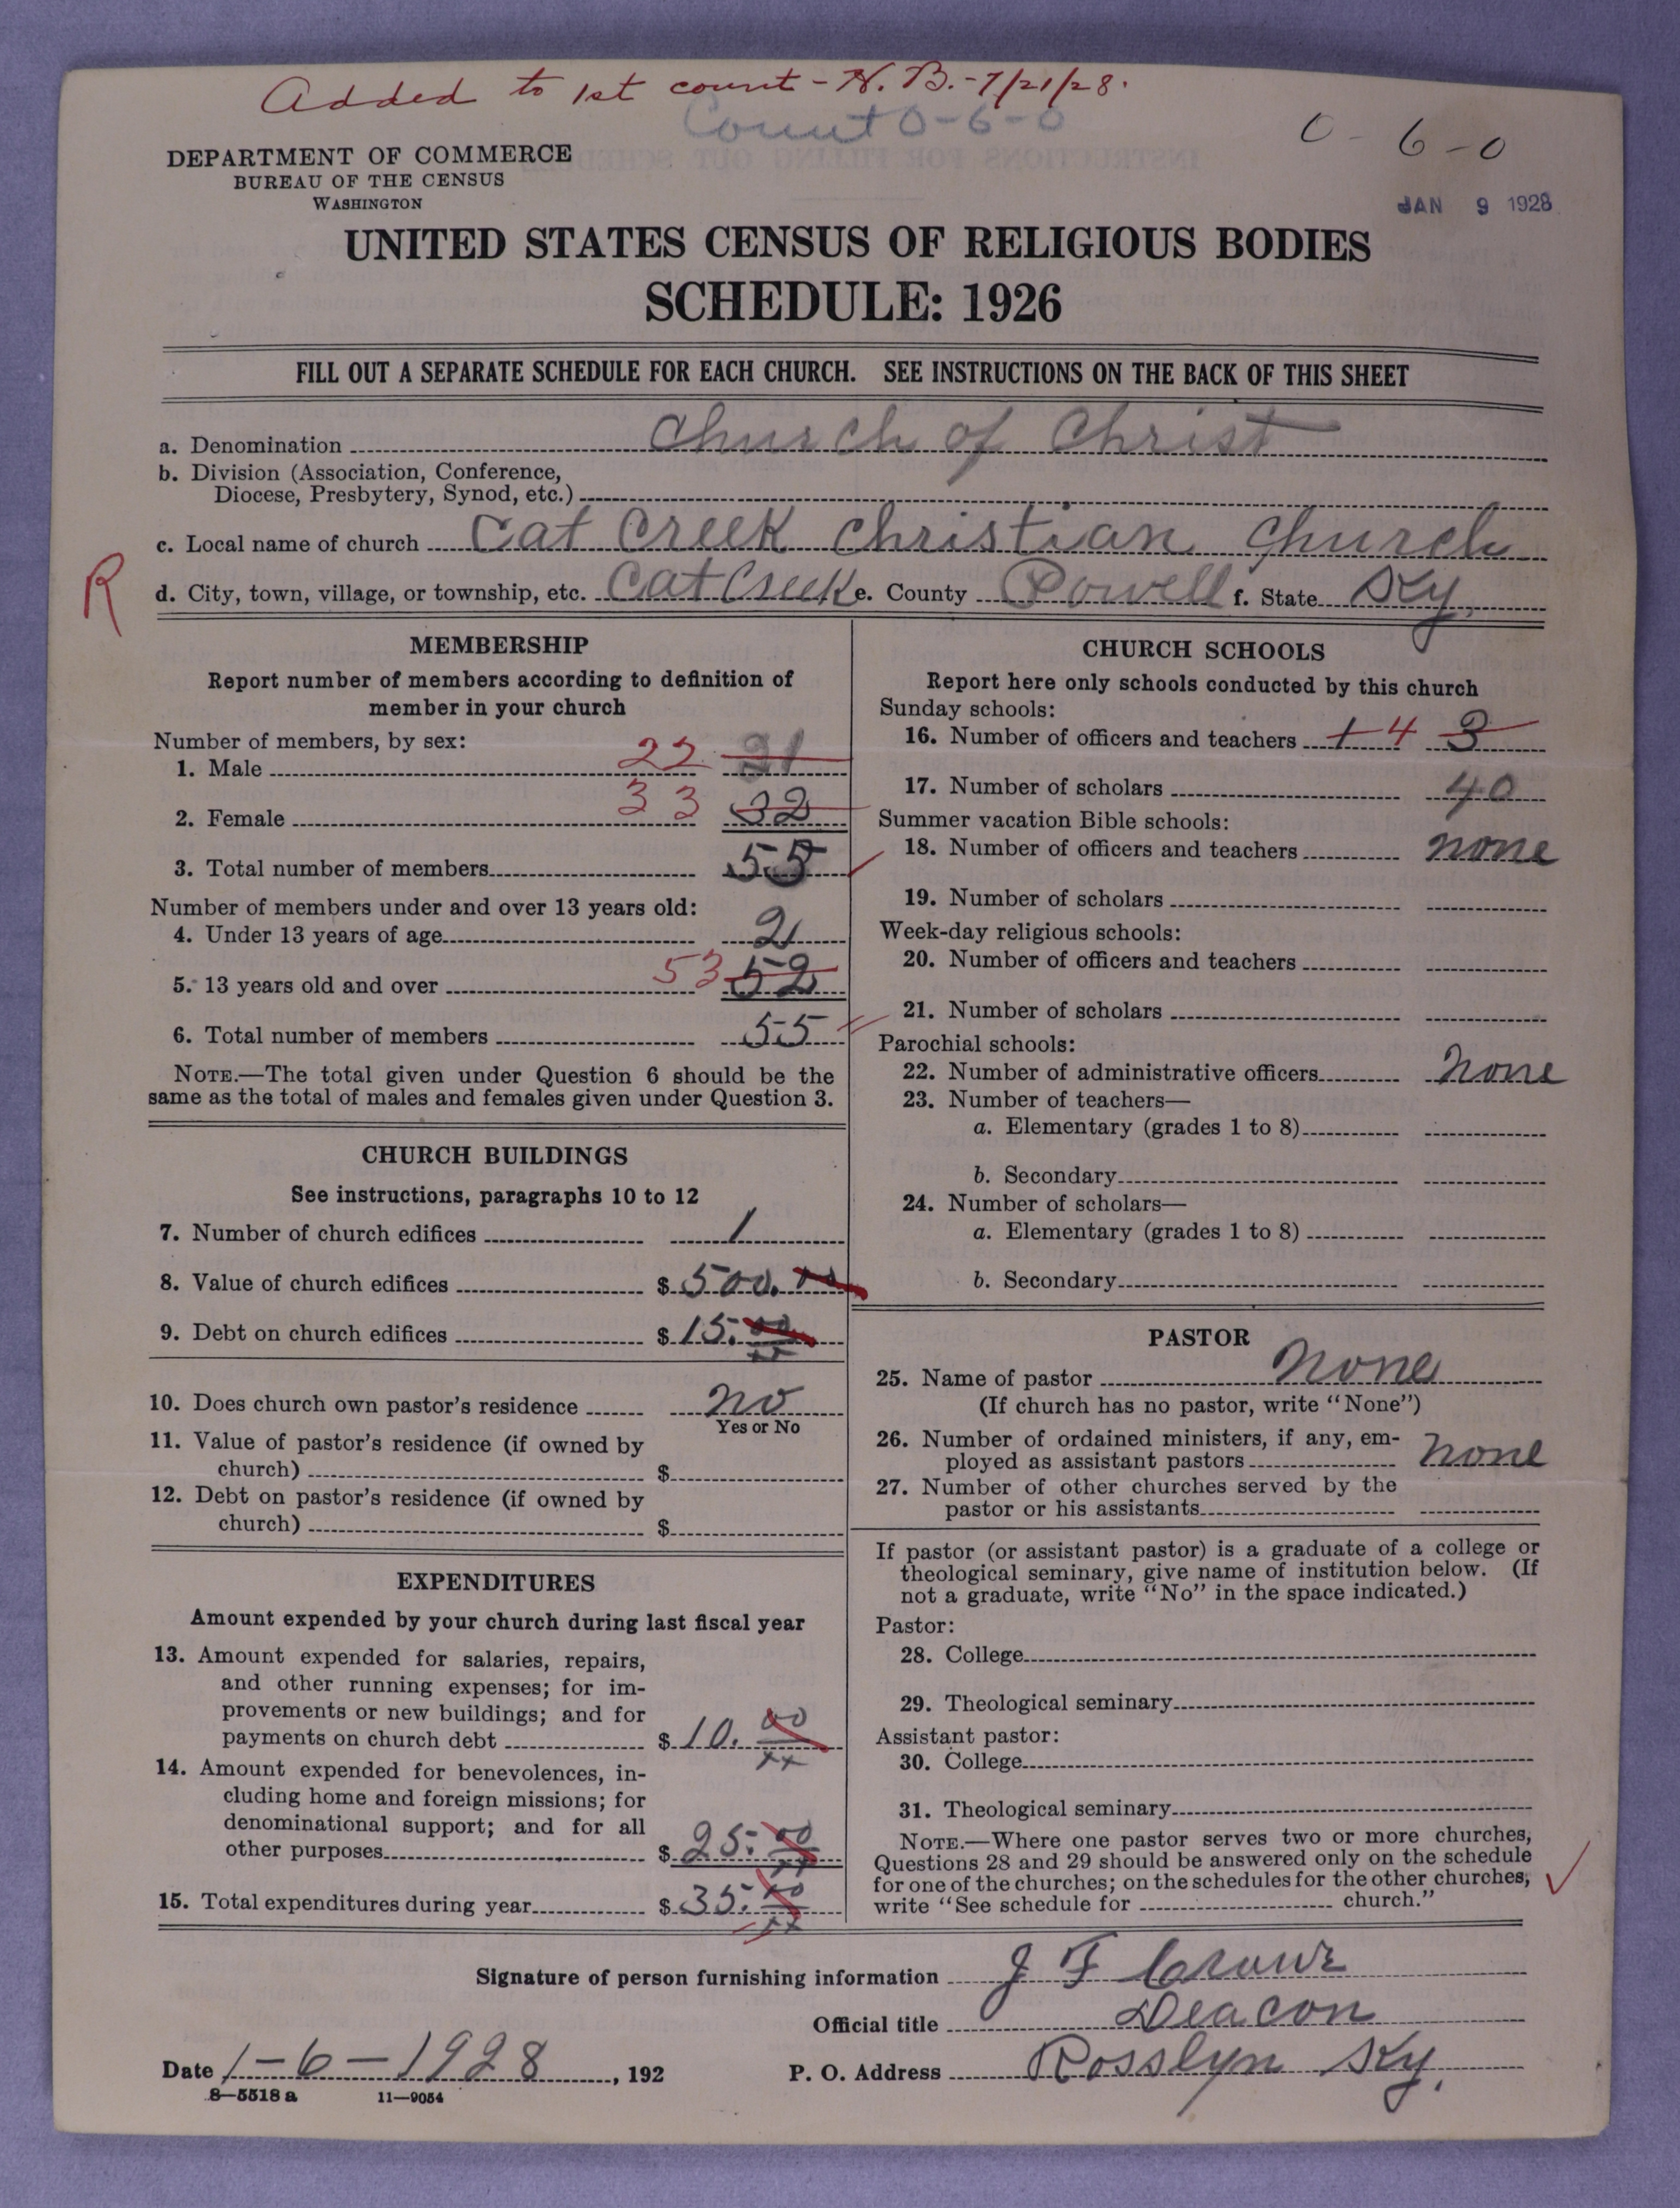 Added to 1st count - H. B. - 7/21/28.
Count 0-6-0
0-6-0
DEPARTMENT OF COMMERCE
BUREAU OF THE CENSUS
WASHINGTON
JAN 9 1928
UNITED STATES CENSUS OF RELIGIOUS BODIES
SCHEDULE: 1926
FILL OUT A SEPARATE SCHEDULE FOR EACH CHURCH. SEE INSTRUCTIONS ON THE BACK OF THIS SHEET
a. Denomination Church of Christ
b. Division (Association, Conference,
Diocese, Presbytery, Synod, etc.)
c. Local name of church Cat Creek Christian Church
R
d. City, town, village, or township, etc. Cat Creek e. County Powell f. State Ky.
MEMBERSHIP
Report number of members according to definition of
member in your church
Number of members, by sex:
1. Male 22 21
2. Female 33 32
3. Total number of members 55
Number of members under and over 13 years old:
4. Under 13 years of age 2
5. 13 years old and over 53 52
6. Total number of members 55
NOTE.—The total given under Question 6 should be the
same as the total of males and females given under Question 3.
CHURCH BUILDINGS
See instructions, paragraphs 10 to 12
7. Number of church edifices 1
8. Value of church edifices $ 500. 00
9. Debt on church edifices $ 15. 00
10. Does church own pastor's residence no
Yes or No
11. Value of pastor's residence (if owned by
church) $
12. Debt on pastor's residence (if owned by
church) $
EXPENDITURES
Amount expended by your church during last fiscal year
13. Amount expended for salaries, repairs,
and other running expenses; for im-
provements or new buildings; and for
payments on church debt $ 10. 00
xx
14. Amount expended for benevolences, in-
cluding home and foreign missions; for
denominational support; and for all
other purposes $ 25. 00
xx
15. Total expenditures during year $ 35. 00
xx
CHURCH SCHOOLS
Report here only schools conducted by this church
Sunday schools:
16. Number of officers and teachers 1 4 3
17. Number of scholars 40
Summer vacation Bible schools:
18. Number of officers and teachers none
19. Number of scholars
Week-day religious schools:
20. Number of officers and teachers
21. Number of scholars
Parochial schools:
22. Number of administrative officers none
23. Number of teachers—
a. Elementary (grades 1 to 8)
b. Secondary
24. Number of scholars—
a. Elementary (grades 1 to 8)
b. Secondary
PASTOR
25. Name of pastor none
(If church has no pastor, write "None")
26. Number of ordained ministers, if any, em-
ployed as assistant pastors none
27. Number of other churches served by the
pastor or his assistants
If pastor (or assistant pastor) is a graduate of a college or
theological seminary, give name of institution below. (If
not a graduate, write "No" in the space indicated.)
Pastor:
28. College
29. Theological seminary
Assistant pastor:
30. College
31. Theological seminary
NOTE.—Where one pastor serves two or more churches,
Questions 28 and 29 should be answered only on the schedule
for one of the churches; on the schedules for the other churches,
write "See schedule for church."
Signature of person furnishing information J F Crowe
Official title Deacon
Date 1-6-1928, 192 P. O. Address Rosslyn Ky.
8—5518 a 11—9054